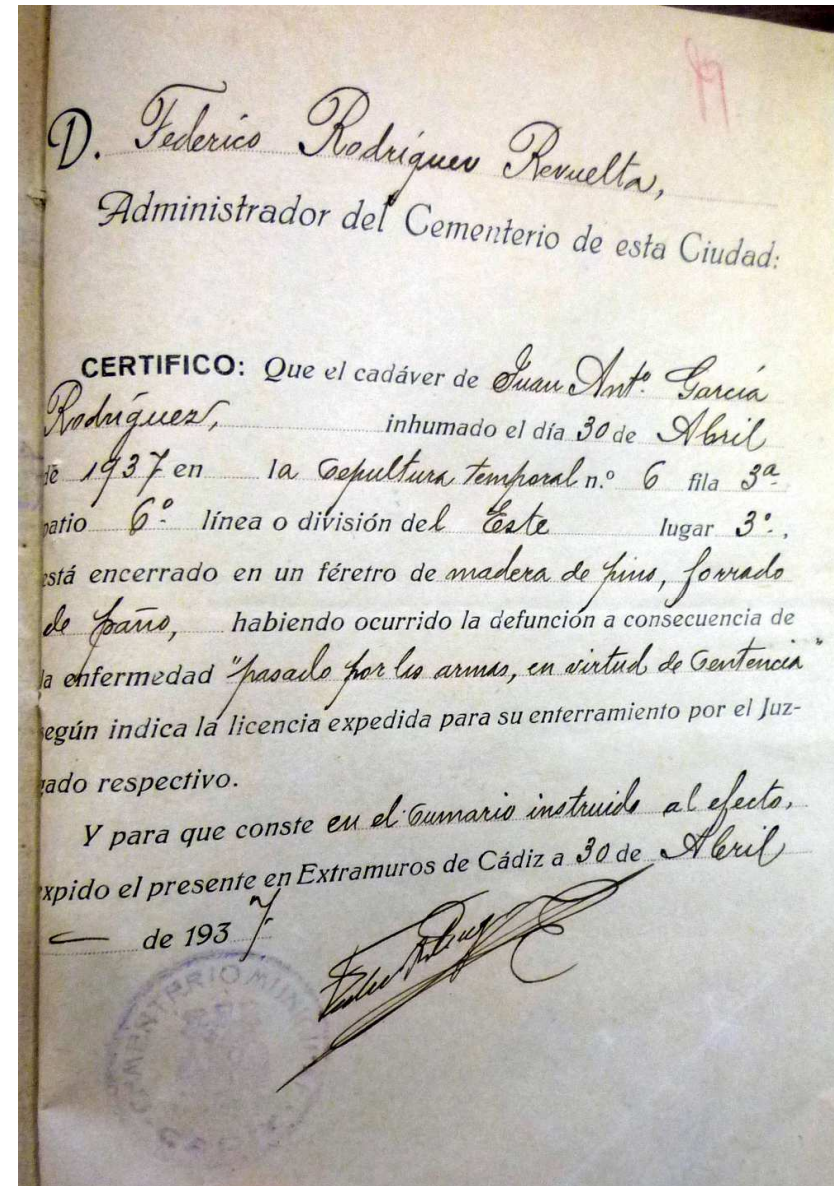 D. Federico Rodríguez Revuelta,
Administrador del Cementerio de esta Ciudad:
CERTIFICO: Que el cadáver de Juan Antº. García
Rodríguez, inhumado el día 30 de Abril
de 1937 en la Sepultura temporal n.º 6 fila 3ª
patio 6º línea o división del Este lugar 3º.,
está encerrado en un féretro de madera de pino, forrado
de paño, habiendo ocurrido la defunción a consecuencia de
la enfermedad "pasado por las armas, en virtud de Sentencia"
según indica la licencia expedida para su enterramiento por el Juz-
gado respectivo.
Y para que conste en el Sumario instruido al efecto,
expido el presente en Extramuros de Cádiz a 30 de Abril
de 1937.
CEMENTERIO MUNICIPAL